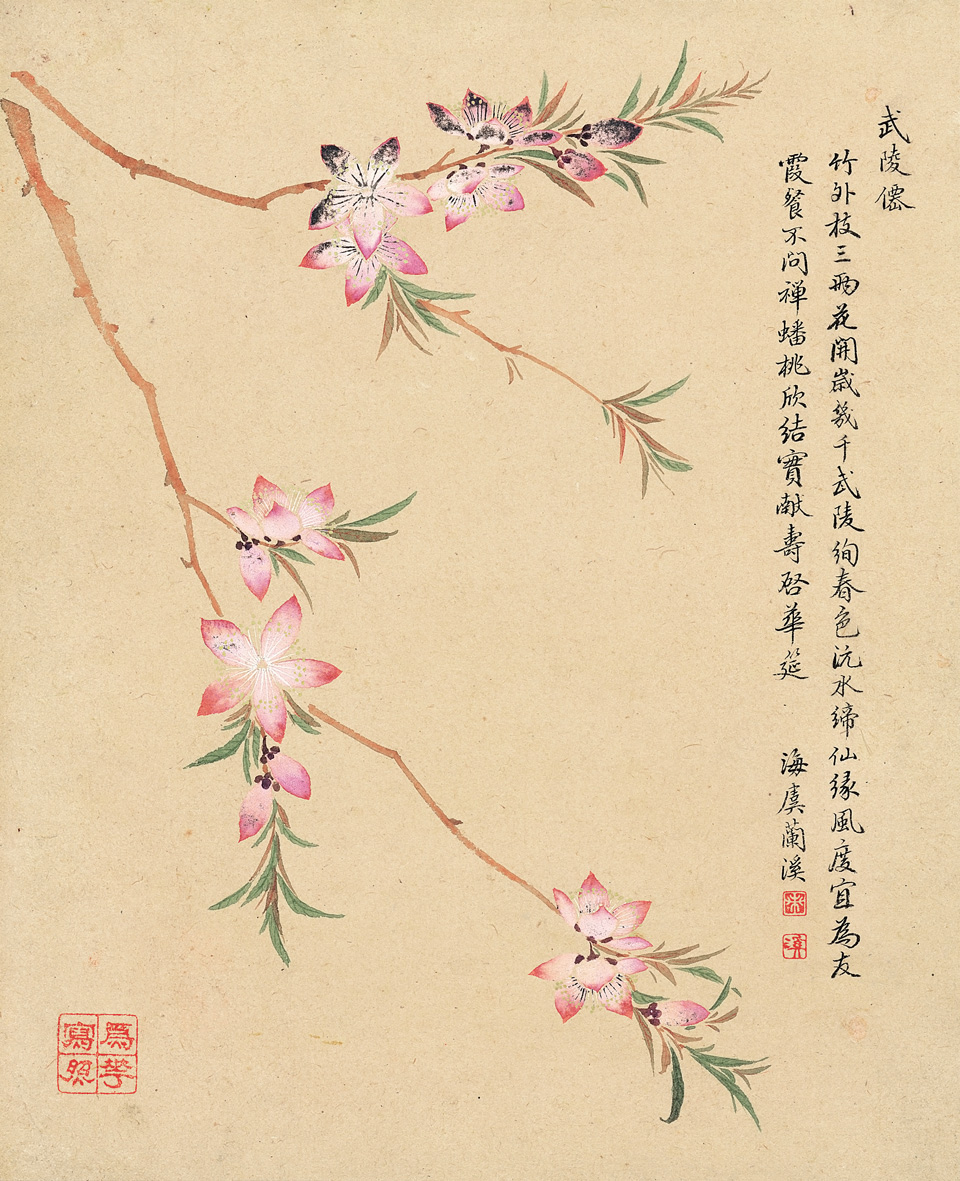 武陵僊
竹外枝三兩花開歲幾千武陵絢春色沅水締仙緣風度宜為友
霞餐不問禅蟠桃欣結實献壽啓華筵
海虞蘭溪
為花寫照